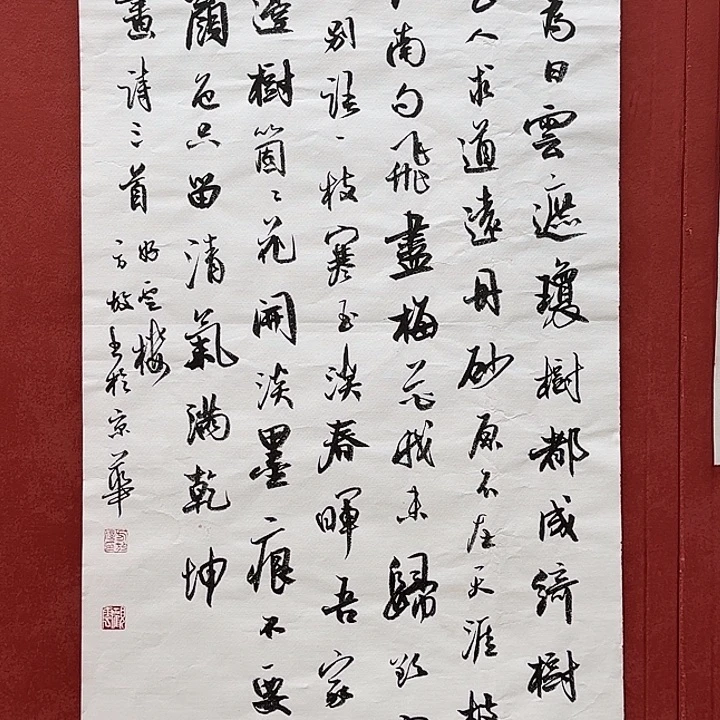 為日雲遮瓊樹都成綺樹
人求道遠丹砂原不在天涯枝
南句飛盡梅花我未歸欲
別語一枝寒玉淡春暉吾家
邊樹箇箇花開淡墨痕不要
顏色只留清氣滿乾坤
畫詩三首
好雲樓
方放書於京華